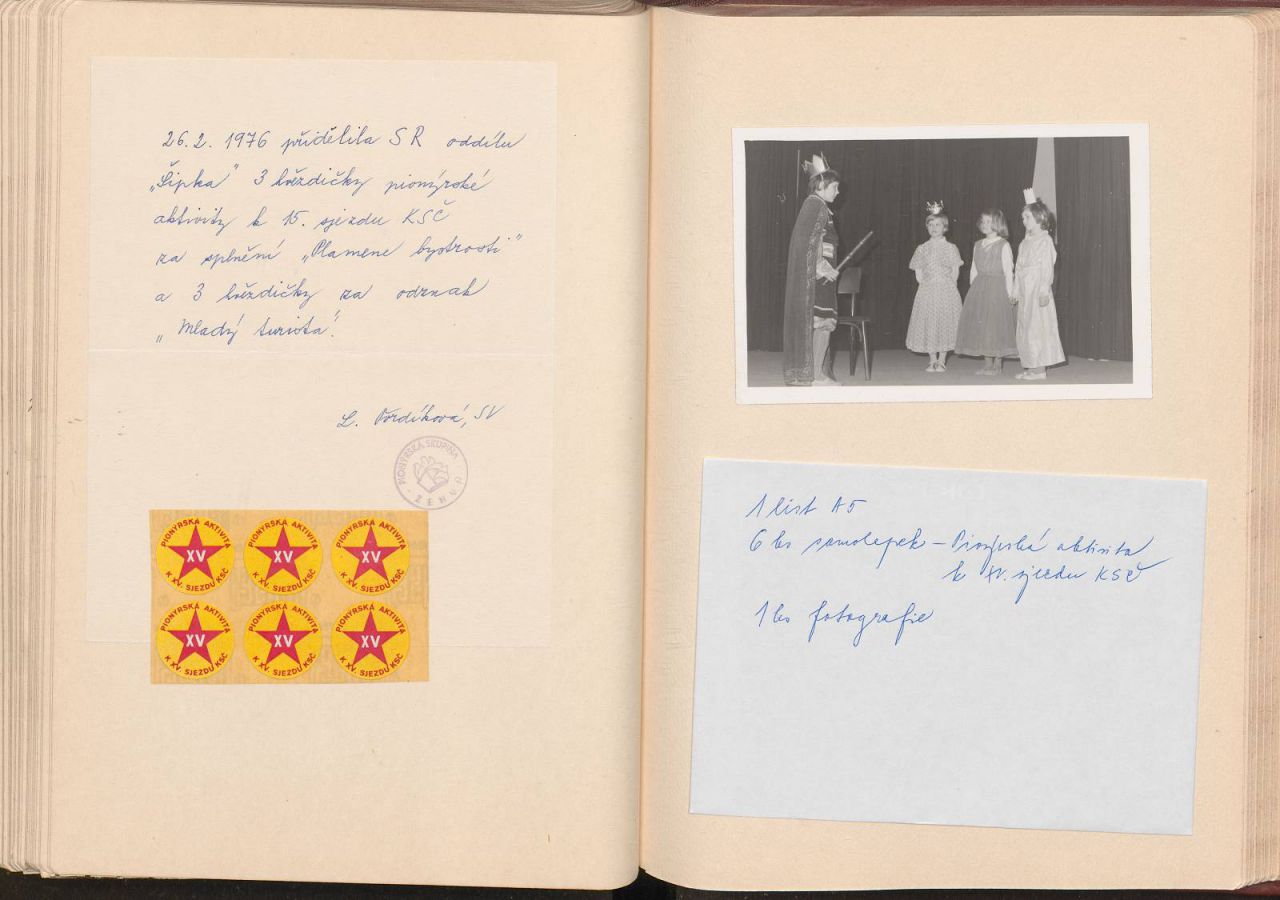 26.2. 1976 přidělila SR oddílu
„Šipka" 3 hvězdičky pionýrské
aktivity k 15. sjezdu KSČ
za splnění „Plamene bystrosti"
a 3 hvězdičky za odznak
„Mladý turista".
L. SV
PIONÝRSKÁ SKUPINA
PIONÝRSKÁ AKTIVITA
XV
K XV. SJEZDU KSČ
PIONÝRSKÁ AKTIVITA
XV
K XV. SJEZDU KSČ
PIONÝRSKÁ AKTIVITA
XV
K XV. SJEZDU KSČ
PIONÝRSKÁ AKTIVITA
XV
K XV. SJEZDU KSČ
PIONÝRSKÁ AKTIVITA
XV
K XV. SJEZDU KSČ
PIONÝRSKÁ AKTIVITA
XV
K XV. SJEZDU KSČ
1 list A5
6 ks samolepek – Pionýrská aktivita
k XV. sjezdu KSČ
1 ks fotografie